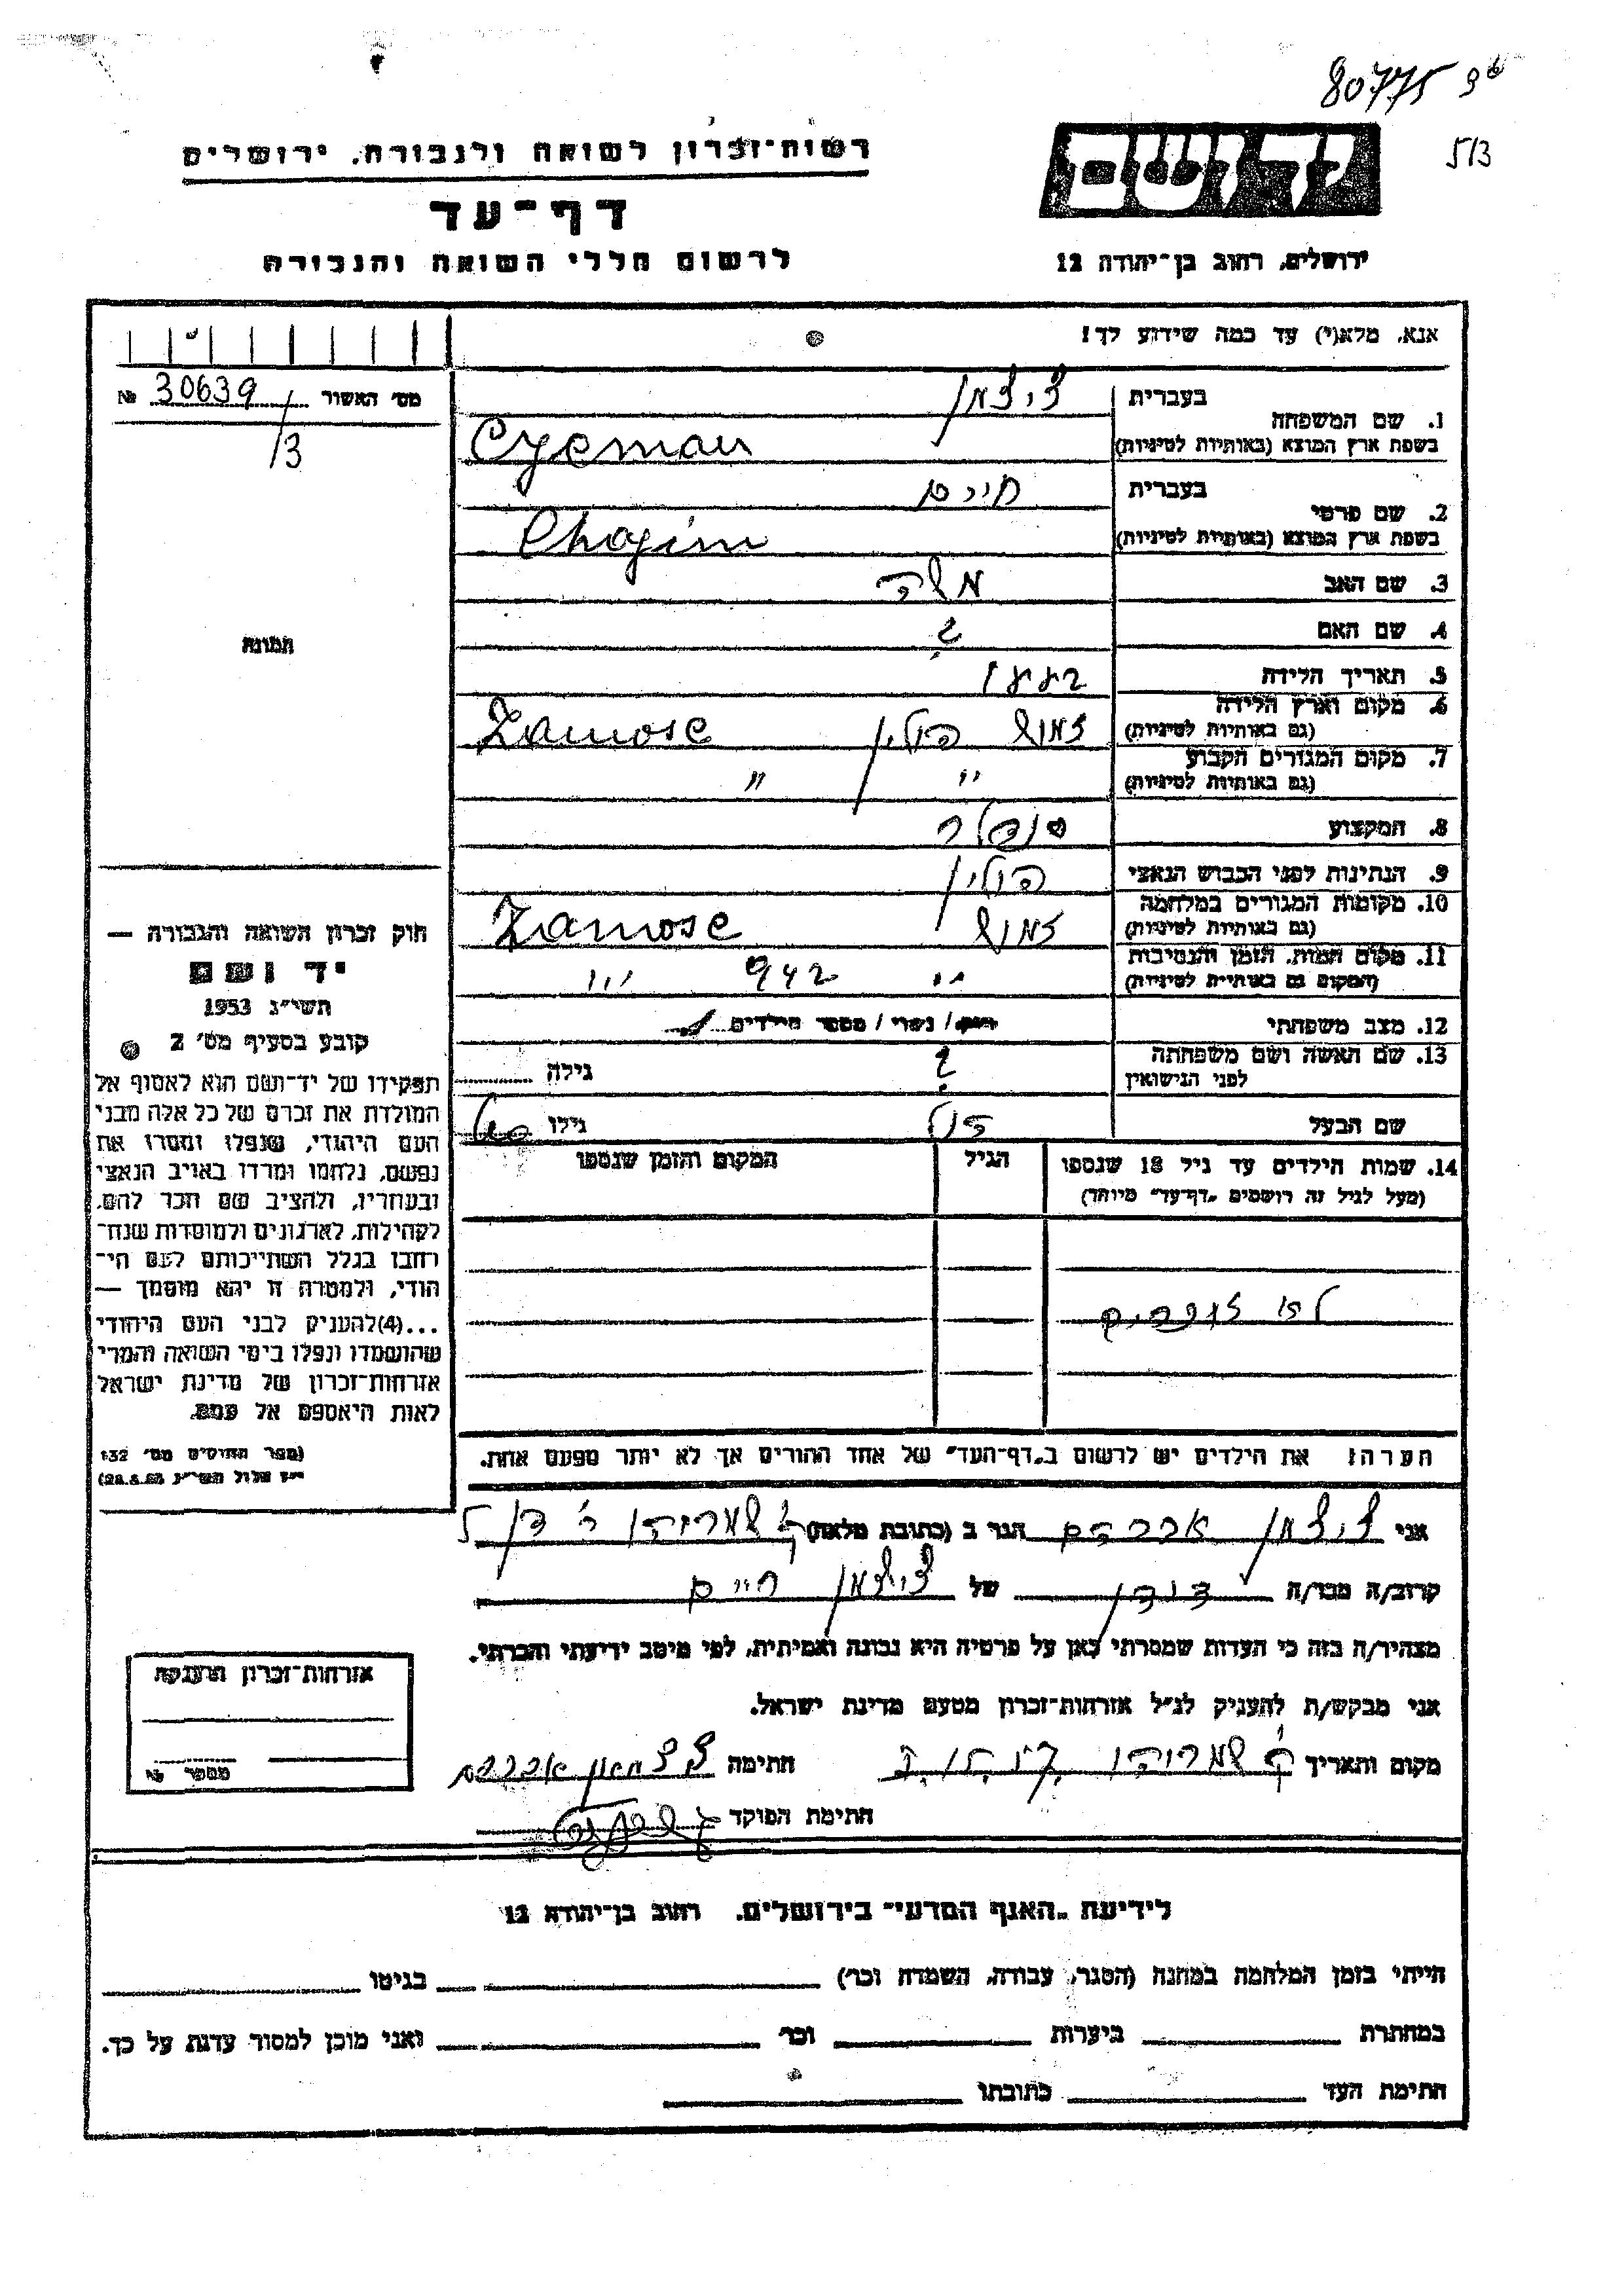 80775
5/3
רשות־זכרון לשואה ולגבורה, ירושלים
יד ושם
דף־עד
לרשום חללי השואה והגבורה
ירושלים, רחוב בן־יהודה 12
אנא, מלא(י) עד כמה שידוע לך!
מס' האשור 30639 №
/3
1. שם המשפחה
בעברית
בשפת ארץ המוצא (באותיות לטיניות)
Cycman
2. שם פרטי
בעברית חיים
בשפת ארץ המוצא (באותיות לטיניות) Chajim
3. שם האב משה
4. שם האם ?
5. תאריך הלידה
6. מקום וארץ הלידה
(גם באותיות לטיניות)
פולין Zamosc
7. מקום המגורים הקבוע
(גם באותיות לטיניות) " "
8. המקצוע סנדלר
9. הנתינות לפני הכבוש הנאצי פולין
10. מקומות המגורים במלחמה
(גם באותיות לטיניות)
Zamosc
11. מקום המות, הזמן והנסיבות
(המקום גם באותיות לטיניות) " 942
12. מצב משפחתי רוק / נשוי / מספר הילדים
13. שם האשה ושם משפחתה
לפני הנישואין ? גילה
שם הבעל גילו
14. שמות הילדים עד גיל 18 שנספו
(מעל לגיל זה רושמים "דף־עד" מיוחד)
הגיל
המקום והזמן שנספו
לא זוכרים
הערה: את הילדים יש לרשום ב"דף־העד" של אחד ההורים אך לא יותר מפעם אחת.
תמונה
חוק זכרון השואה והגבורה —
יד ושם
תשי"ג 1953
קובע בסעיף מס' 2
תפקידו של יד־ושם הוא לאסוף אל
המולדת את זכרם של כל אלה מבני
העם היהודי, שנפלו ומסרו את
נפשם, נלחמו ומרדו באויב הנאצי
ובעוזריו, ולהציב שם וזכר להם,
לקהילות, לארגונים ולמוסדות שנח־
רבו בגלל השתייכותם לעם הי־
הודי, ולמטרה זו יהא מוסמך —
...(4)להעניק לבני העם היהודי
שהושמדו ונפלו בימי השואה והמרי
אזרחות־זכרון של מדינת ישראל
לאות היאספם אל עמם.
(ספר החוקים מס' 132
י"ז אלול תשי"ג 28.8.53)
אני אברהם הגר ב (כתובת מלאה)
קרוב/ה מכר/ה דודן של חיים
מצהיר/ה בזה כי העדות שמסרתי כאן על פרטיה היא נכונה ואמיתית, לפי מיטב ידיעתי והכרתי.
אני מבקש/ת להעניק לנ"ל אזרחות־זכרון מטעם מדינת ישראל.
מקום ותאריך חתימה אברהם
חתימת הפוקד
אזרחות־זכרון הוענקה
מספר №
לידיעת "האגף המדעי" בירושלים, רחוב בן־יהודה 12
הייתי בזמן המלחמה במחנה (הסגר, עבודה, השמדה וכו') בגיטו
במחתרת ביערות וכו' ואני מוכן למסור עדות על כך.
חתימת העד כתובתו